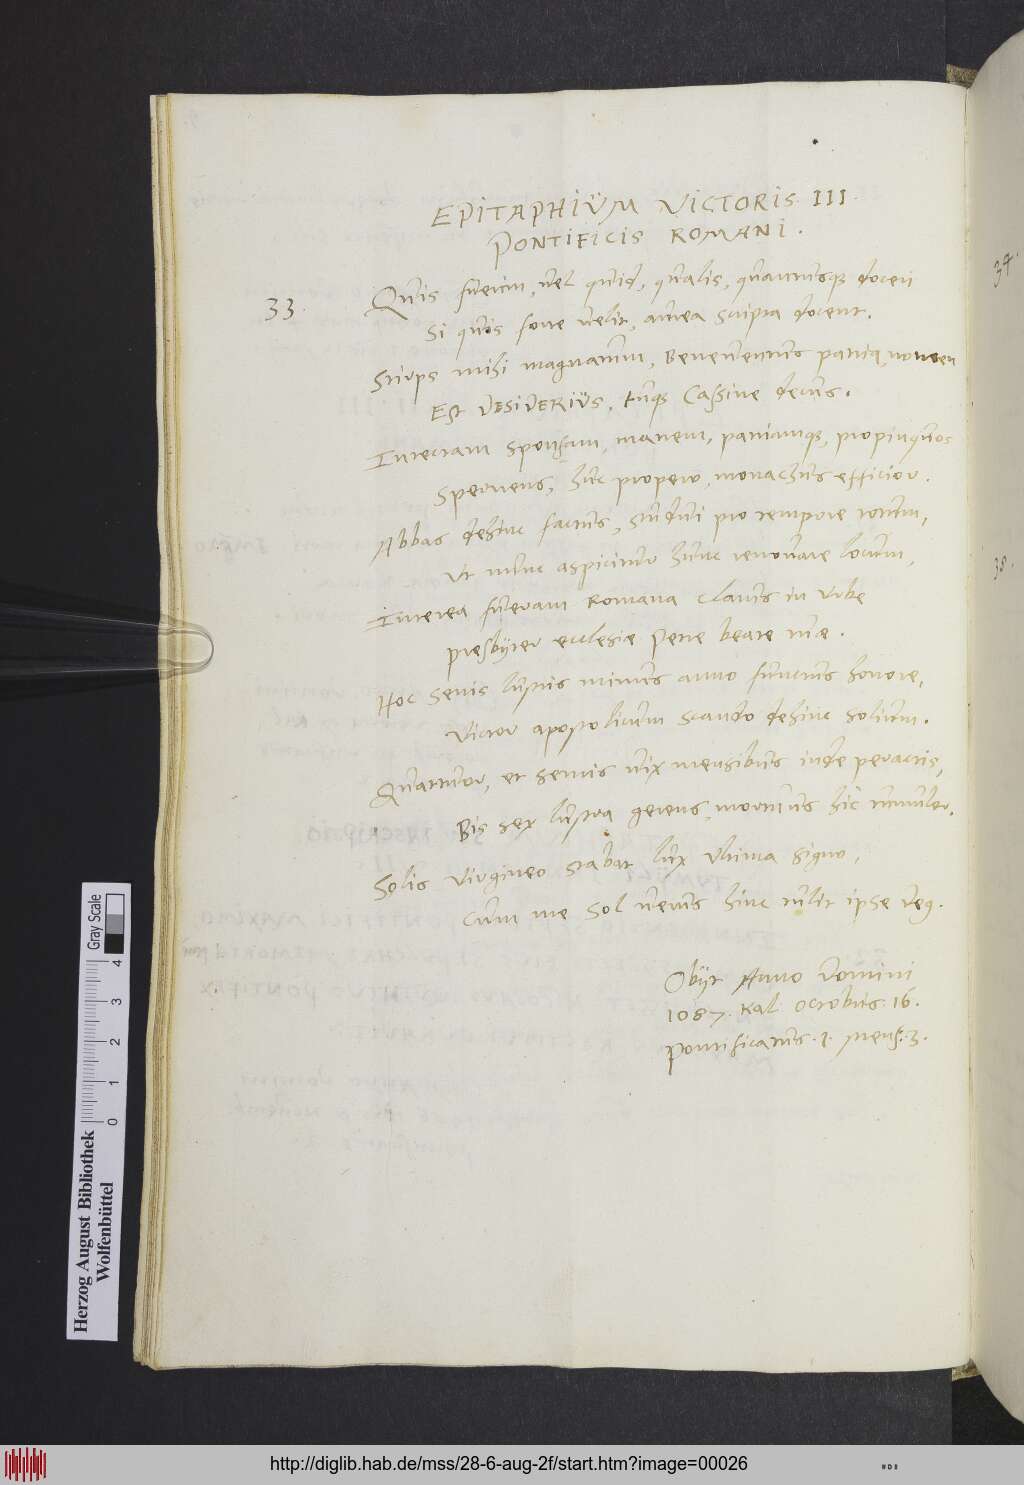 EPITAPHIÜM VICTORIS III.
PONTIFICIS ROMANI.
33. Quis fuerim, vel quid, qualis, quantusq; doceri
Si quis forte velit, aurea scripta docent.
Stirps mihi magnatum, Beneventus patria, nomen
Est DESIDERIÜS, tuq; Cassine decus.
Intectam sponsam, matrem, patriamq;, propinquos
Spernens, huc propero, monachus efficior.
Abbas dehinc factus, studui pro tempore totum,
Ut nunc aspicitur hunc renovare locum,
Interea fueram Romana clarus in Urbe
Presbyter ecclesiæ Petre beate tuæ.
Hoc senis lustris minus anno functus honore,
Victor apostolicum scando dehinc solium.
Quattuor, et semis vix mensibus inde peractis,
Bis sex lustra gerens, mortuus hic tumulor.
Solis Virgineo stabat lux Ultima signo,
Cum me Sol verus hinc tulit ipse Deg.
Obijt Anno Domini
1087. Kal. Octobris 16.
Pontificatus. 1. Mens. 3.
34.
35.
Herzog August Bibliothek
Wolfenbüttel
0 1 2 3 4
Gray Scale
http://diglib.hab.de/mss/28-6-aug-2f/start.htm?image=00026